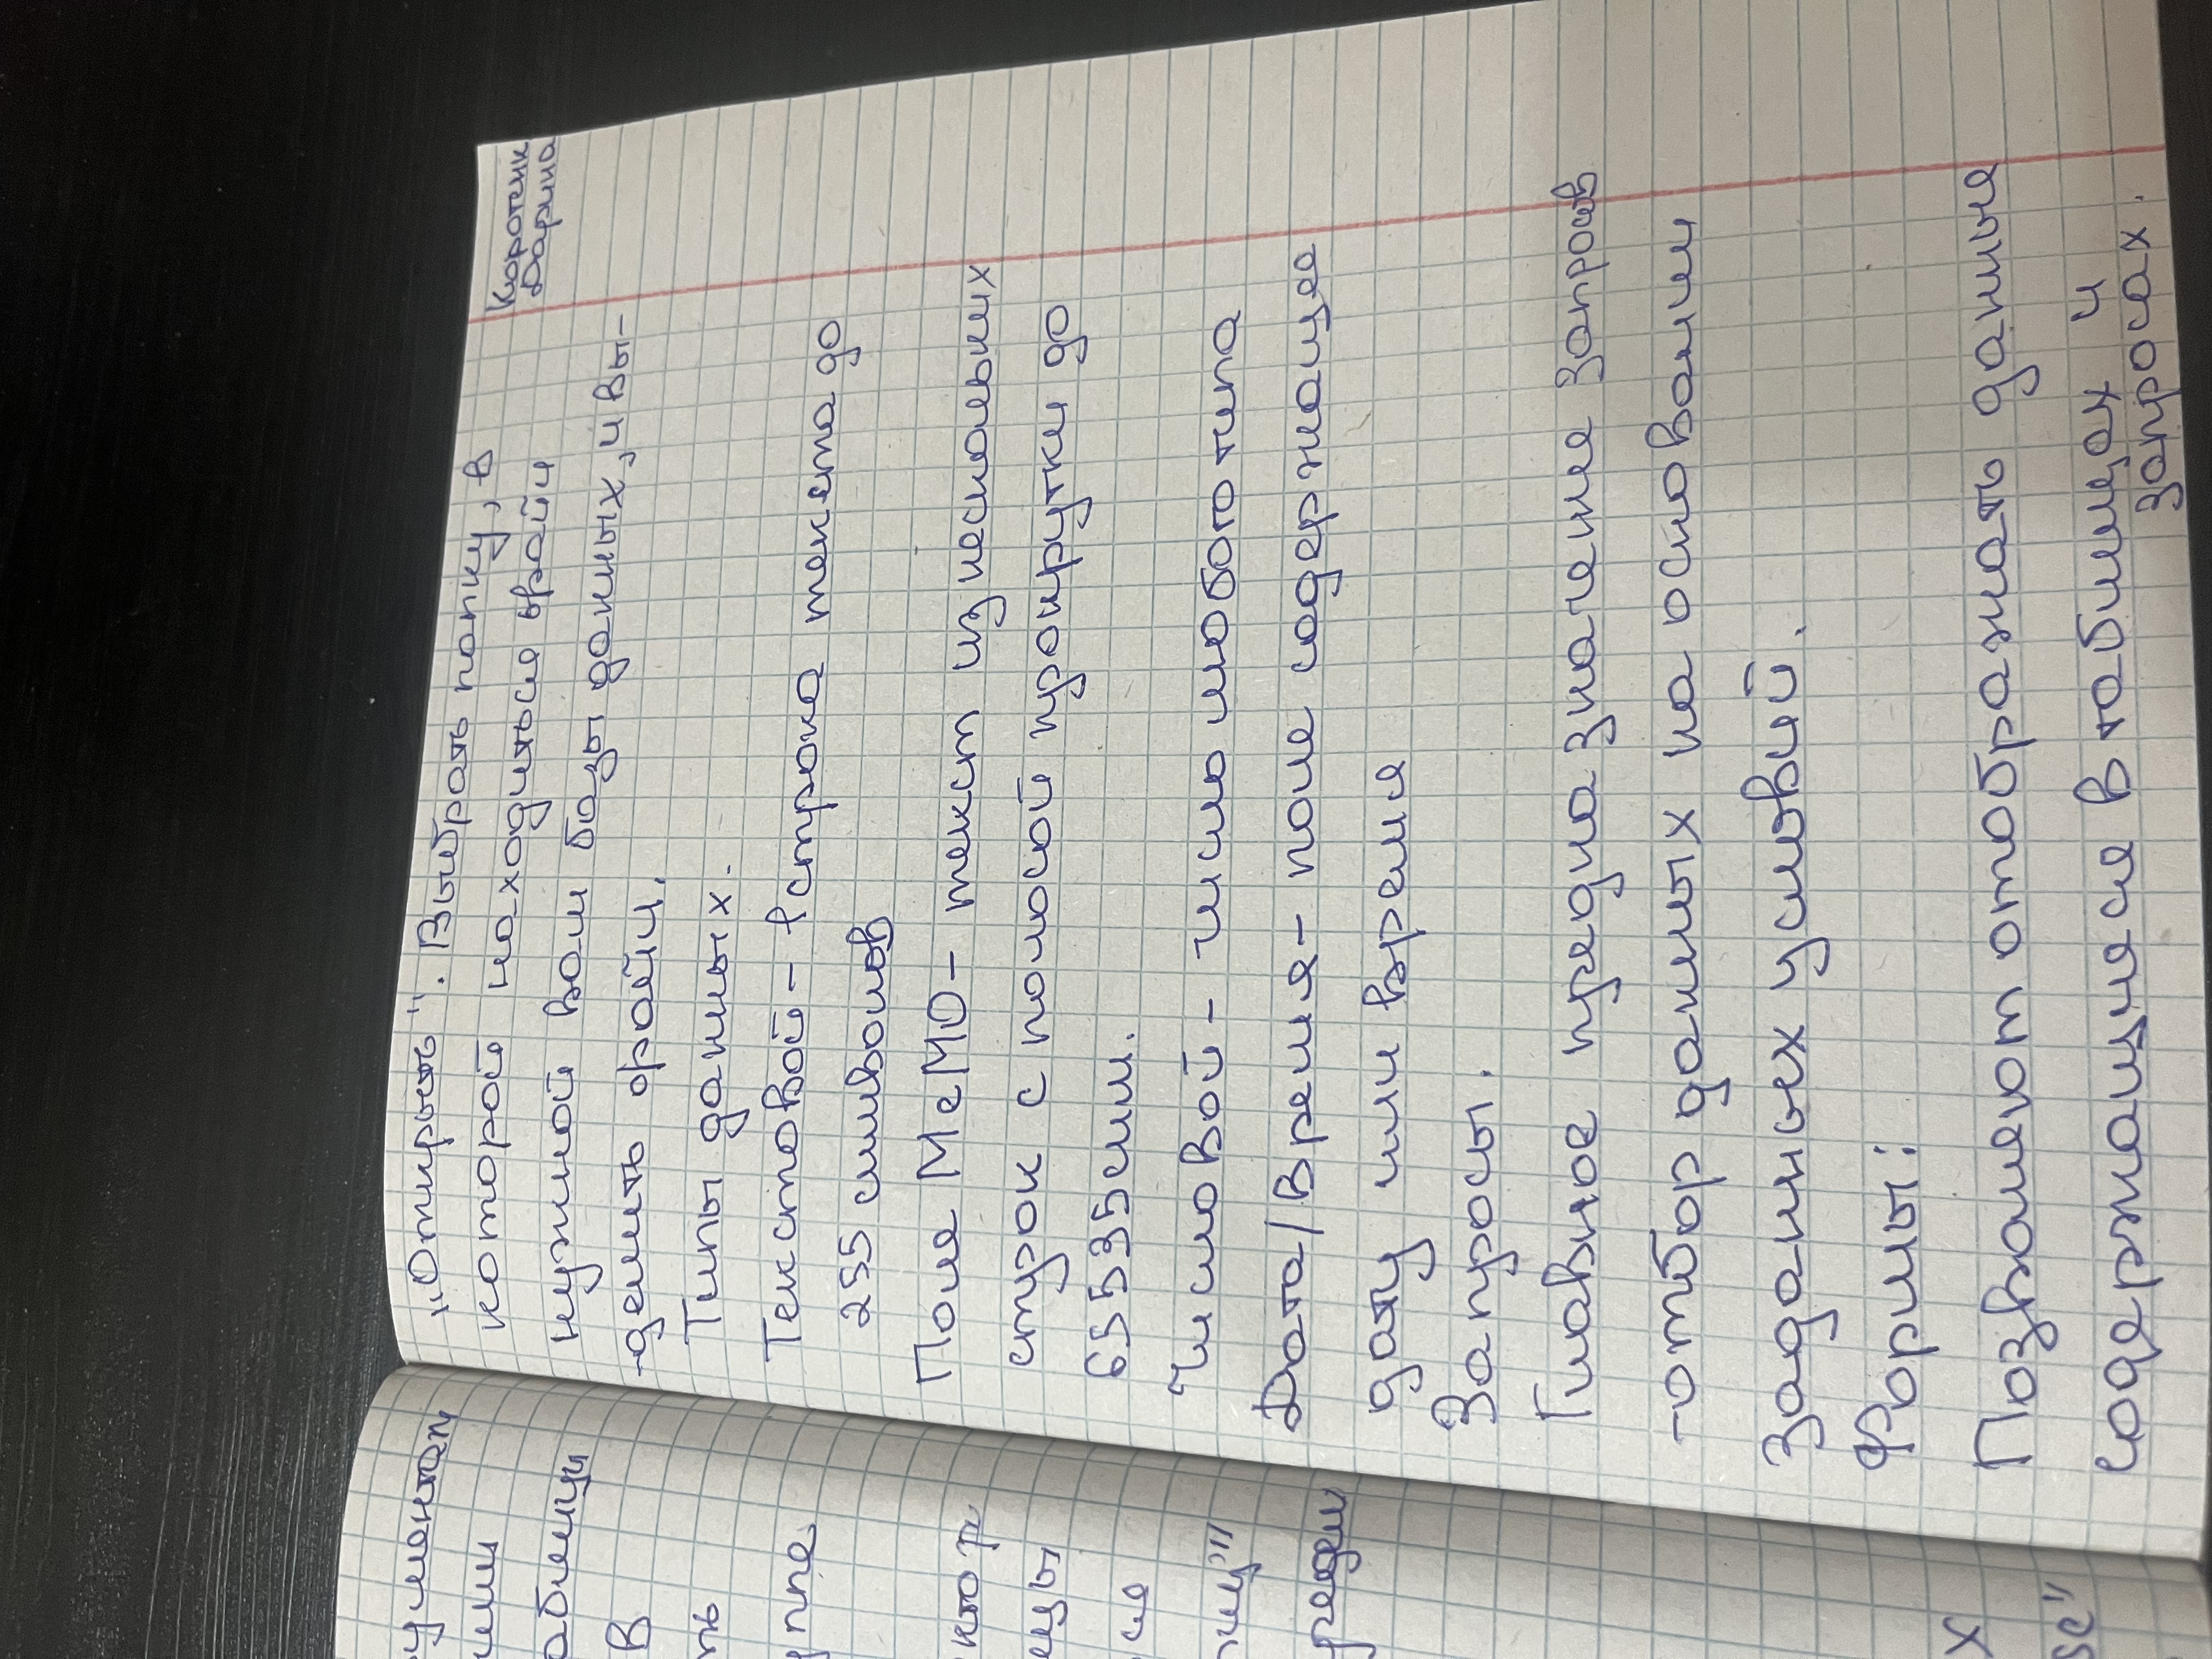 Коротенк
Дарина
"Открыть". Выбрать папку, в
которой находиться файл
нужной вам базы данных, и вы-
-делить файл.
Типы данных.
Текстовой - 1 строка текста до
255 символов
Поле МеМО - текст из нескольких
строк с полосой прокрутки до
65535 сим.
Числовой - число любого типа
Дата/Время - поле содержащее
дату или время
Запросы.
Главное предназначение запросов
-отбор данных на основании
заданных условий.
Формы:
Позволяют отображать данные
содержащиеся в таблицах и
запросах.
ументам
или
аблицы
В
ть
уппе
х